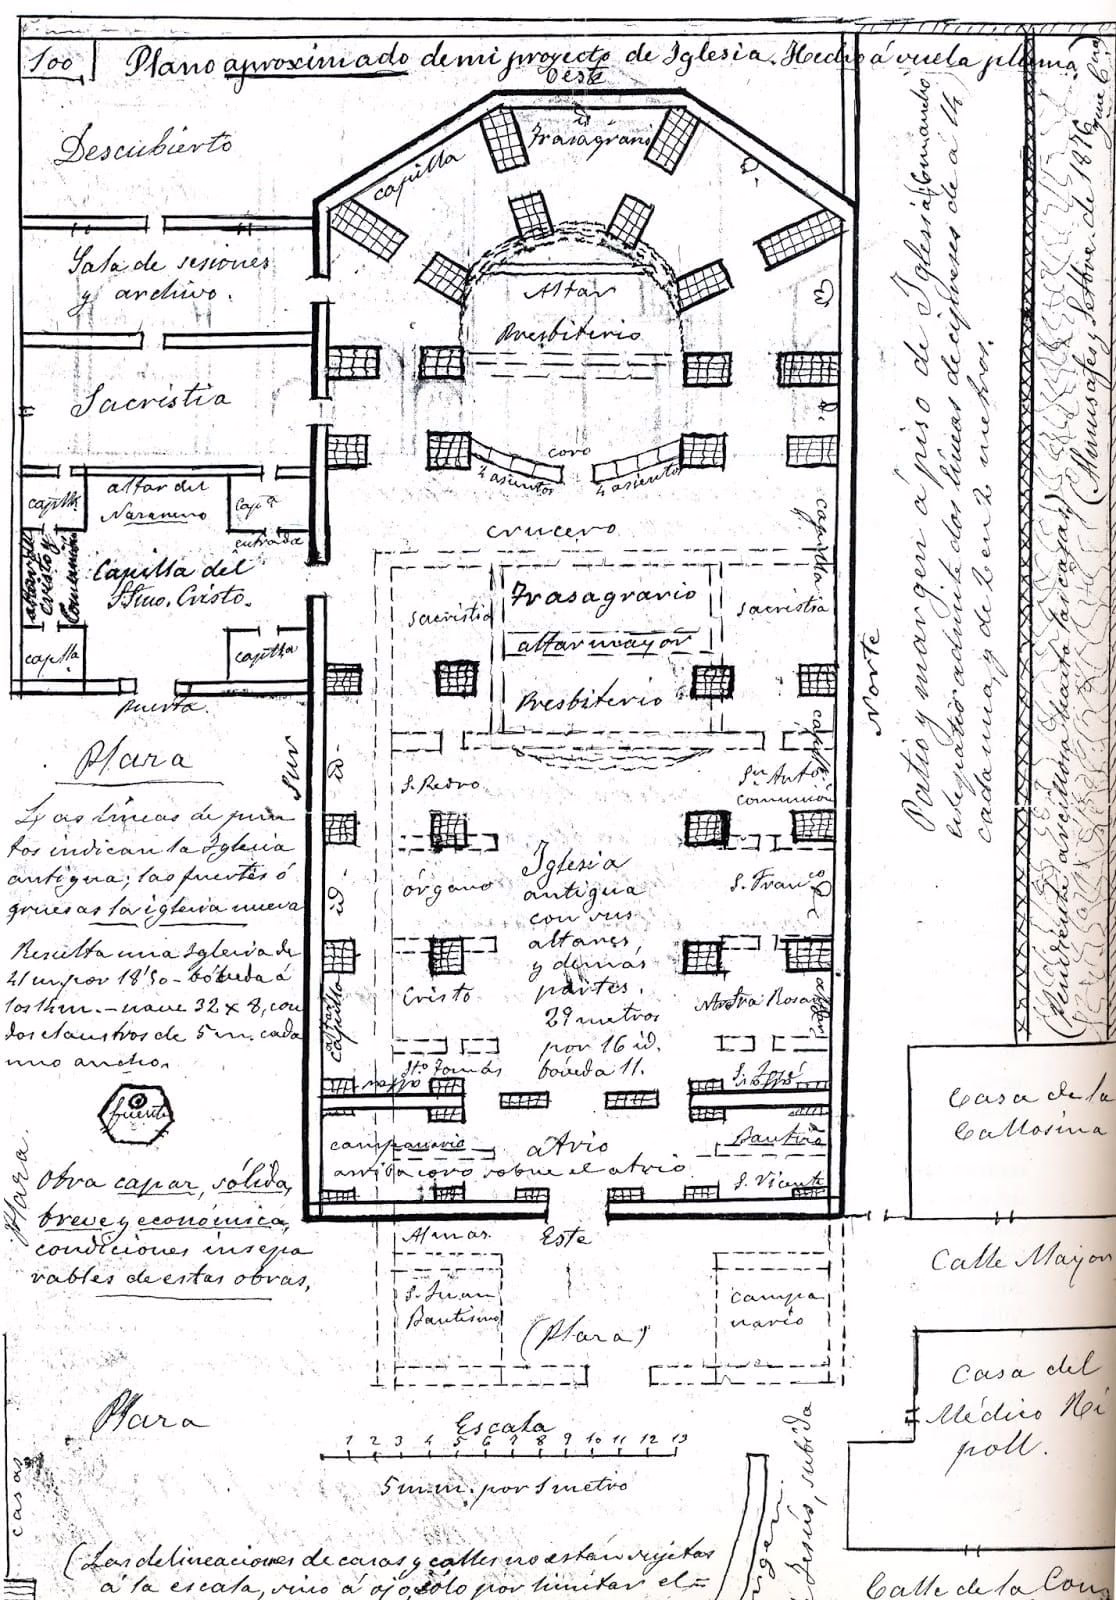 100
Plano aproximado de mi proyecto de Iglesia. Hecho á vuela pluma.
Oeste
Descubierto
Capilla
Trasagrario
Sala de sesiones
y archivo.
Altar
Presbiterio
Sacristia
coro
4 asientos
4 asientos
capilla
altar del
Nazareno
Cap.ª
entrada
crucero
Capilla del
SSmo. Cristo.
Comunión
capilla
capilla
puerta.
Trasagrario
altar mayor
Presbiterio
sacristia
sacristia
capilla
capilla
Norte
Sur
Plaza
Las líneas de pun
tos indican la Iglesia
antigua; las fuertes ó
gruesas la iglesia nueva
Resulta una Iglesia de
41 m. por 18'50 - bóveda á
los 14 m. - nave 32 x 8, con
dos claustros de 5 m. cada
uno ancho.
fuente
Plaza
Obra capaz, sólida,
breve y económica,
condiciones insepa
rables de estas obras,
S. Pedro
Sn. Antº
comunión
órgano
S. Franco
Iglesia
antigua
con sus
altares,
y demás
partes.
29 metros
por 16 id.
bóveda 11.
Cristo
Ntra Sra Rosario
Capilla
Sto. Tomás
altar
S. José
campanario
atrio
Bautiso
arriba coro sobre el atrio
S. Vicente
Almas.
Este
S. Juan
Bautismo
(Plaza)
campa
nario
Plaza
casas
Escala
1 2 3 4 5 6 7 8 9 10 11 12 13
5 m.m. por 1 metro
(Las delineaciones de casas y calles no están sujetas
á la escala, sino á ojo, sólo por limitar el
Patio y margen á piso de Iglesia
este patio admite dos líneas de cipreses de á 14
cada una, y de 2 en 2 metros.
(Pendiente arcillosa hasta las casas)
(Almusafes, y Setbre. de 1876.
Casa de la
Callosina
Calle Mayor
Casa del
Médico Ri
poll.
Jesús, subida
Calle de la